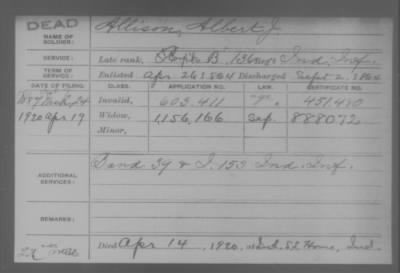 DEAD
NAME OF SOLDIER: Allison, Albert J.
SERVICE: Late rank, Corpl. B, 136 Reg't Ind. Inf.
TERM OF SERVICE: Enlisted Apr 26 1864 Discharged Sept 2, 1864
DATE OF FILING. CLASS. APPLICATION NO. LAW. CERTIFICATE NO.
Invalid, 603,411 451,480
1920 Apr 19 Widow, 1,156,166 888072
Minor,
ADDITIONAL SERVICES: Band 39 & I. 153 Ind. Inf.
REMARKS:
Died Apr 14, 1920, Home, Ind.